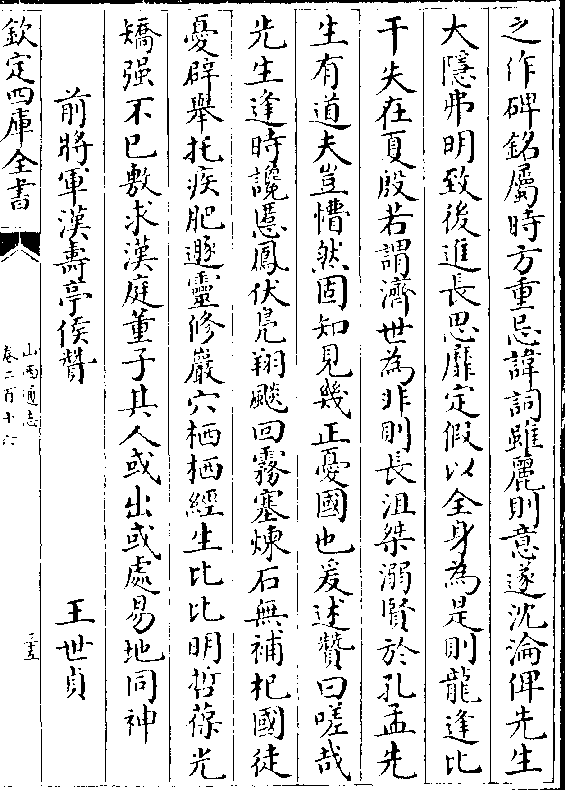 之作碑銘屬時方重忌諱詞雖麗則意遂沈淪俾先生
大隱弗明致後進長思靡定假以全身為是則龍逢比
干失在夏殷若謂濟世為非則長沮桀溺賢於孔孟先
生有道夫豈懵然固知見幾正憂國也爰述贊曰嗟哉
先生逢時讒慝鳳伏鳧翔飈回霧塞煉石無補杞國徒
憂辟舉托疾肥遯靈修巖穴栖栖經生比比明哲葆光
矯强不已敷求漢庭董子其人或出或處易地同神
前將軍漢壽亭侯贊 王世貞
欽定四庫全書
山西通志
卷二百十六
三五